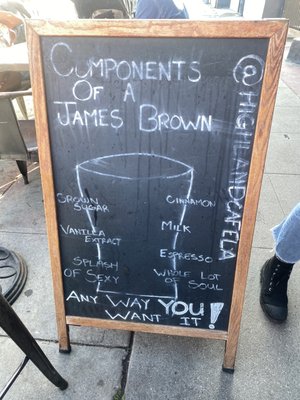 COMPONENTS
OF A
JAMES BROWN
@HIGHLANDCAFELA
BROWN
SUGAR
CINNAMON
VANILLA
EXTRACT
MILK
ESPRESSO
SPLASH
OF SEXY
WHOLE LOT
OF SOUL
ANY WAY YOU
WANT IT!